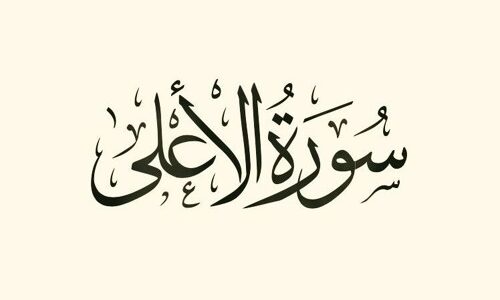 سُورَةُ الأَعْلَى